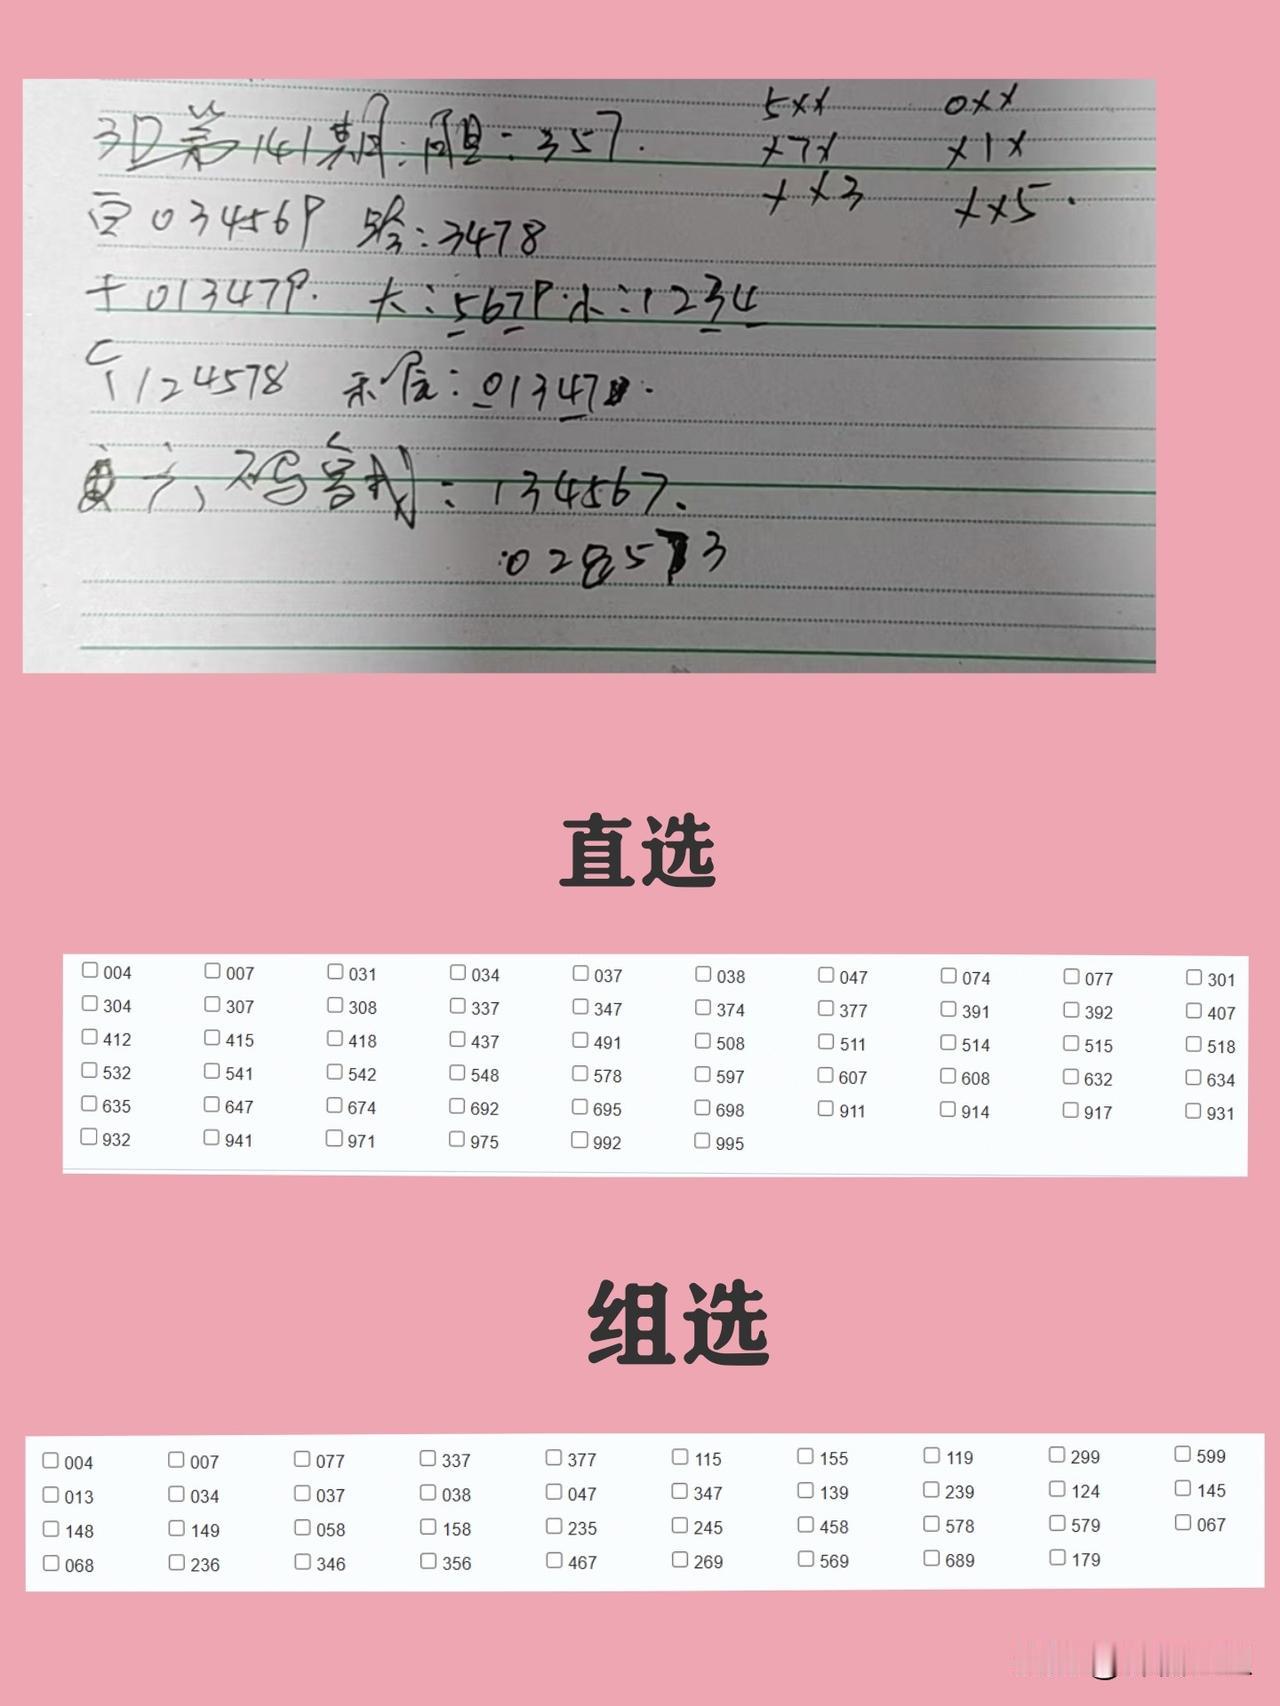 3D第141期:胆:357. 5xx 0xx
x7x x1x
xx3 x x5.
百034569 跨:3478
十013479. 大:5679.小:1234
个124578 和值:01347
六码复式:134567.
028573
直选
004 007 031 034 037 038 047 074 077 301
304 307 308 337 347 374 377 391 392 407
412 415 418 437 491 508 511 514 515 518
532 541 542 548 578 597 607 608 632 634
635 647 674 692 695 698 911 914 917 931
932 941 971 975 992 995
组选
004 007 077 337 377 115 155 119 299 599
013 034 037 038 047 347 139 239 124 145
148 149 058 158 235 245 458 578 579 067
068 236 346 356 467 269 569 689 179